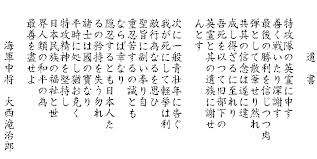 遺書
特攻隊の英霊に曰す
善く戦いたり深謝す
最後の勝利を信じつつ肉
弾として散華せり然れ
共其の信念は遂に達
成し得ざるに至れり
吾死を以って旧部下の
英霊と其の遺族に謝せ
んとす
次に一般青壮年に告ぐ
我が死にして軽挙は利
敵行為なるを思ひ
聖旨に副い奉り自
重忍苦するの誡とも
ならば幸なり
隠忍するとも日本人た
るの衿持を失う勿れ
諸士は国の寶なり
平時に処し猶お克く
特攻精神を堅持し
日本民族の福祉と世
界人類の和平の為
最善を盡せよ
海軍中将 大西滝治郎